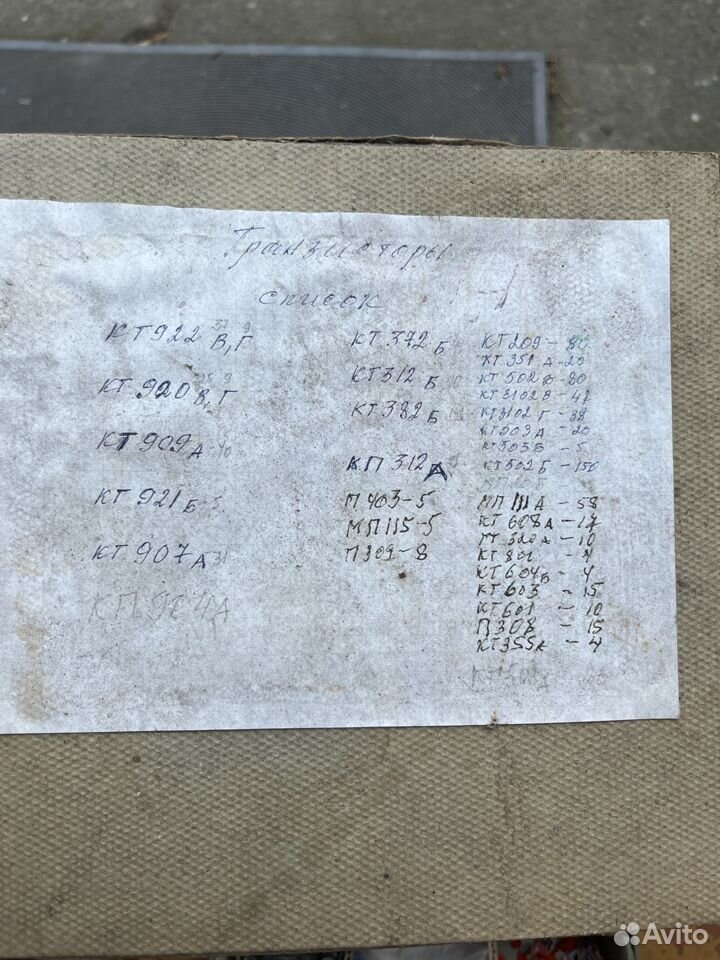 Транзисторы
список
КТ922 В,Г
КТ 920 В,Г
КТ 909 А
КТ 921 Б
КТ 907 А
КП 904А
КТ 372 Б
КТ 312 Б
КТ 382 Б
КП 312 А
П 403-5
МП 115-5
П309-8
КТ209-80
КТ 351 А-20
КТ 502 В-80
КТ3102 В-
КТ3102 Г-38
КТ503А-20
КТ503В-5
КТ502 Б-150
МП 111А-58
КТ 608А-17
ГТ 320А-10
КТ 801-4
КТ 604Б-4
КТ 603-15
КТ 601-10
П308-15
КТ355А-4
Avito